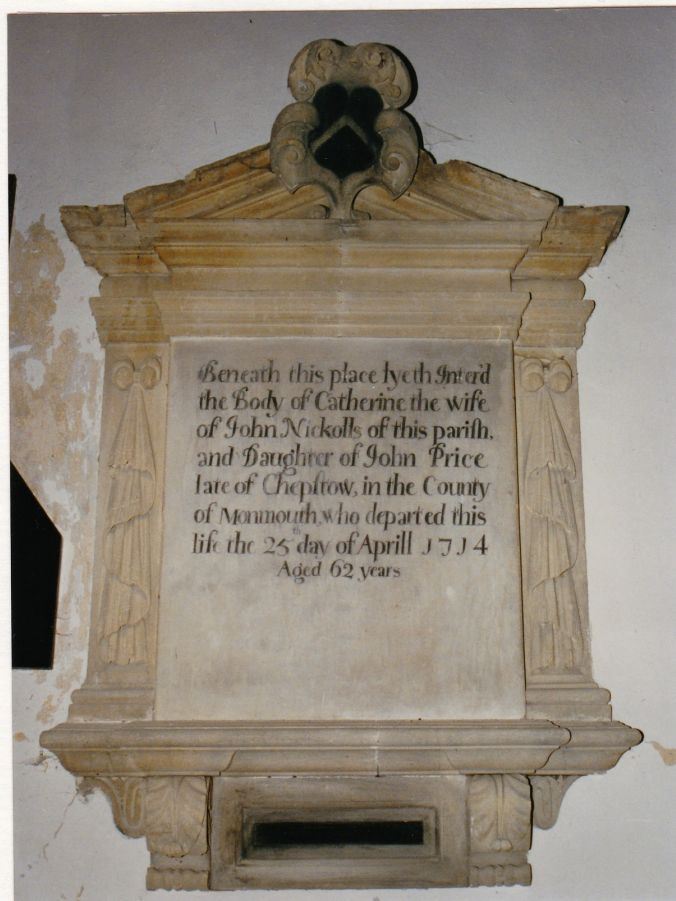 Beneath this place lyeth Inter'd
the Body of Catherine the wife
of John Nickolls of this pariſh,
and Daughter of John Price
late of Chepſtow, in the County
of Monmouth, who departed this
life the 25th day of Aprill 1714
Aged 62 years